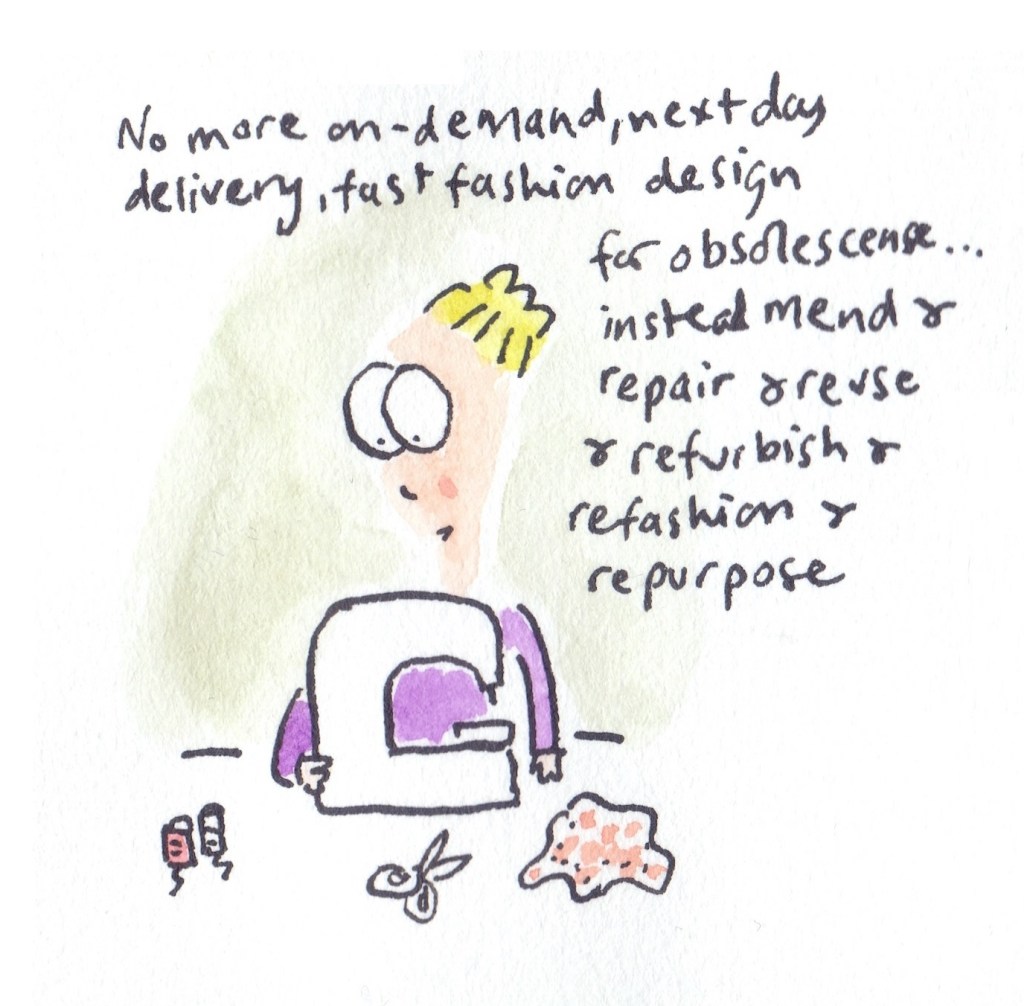 No more on-demand, next day
delivery, fast fashion design
for obsolescense...
instead mend &
repair & reuse
& refurbish &
refashion &
repurpose